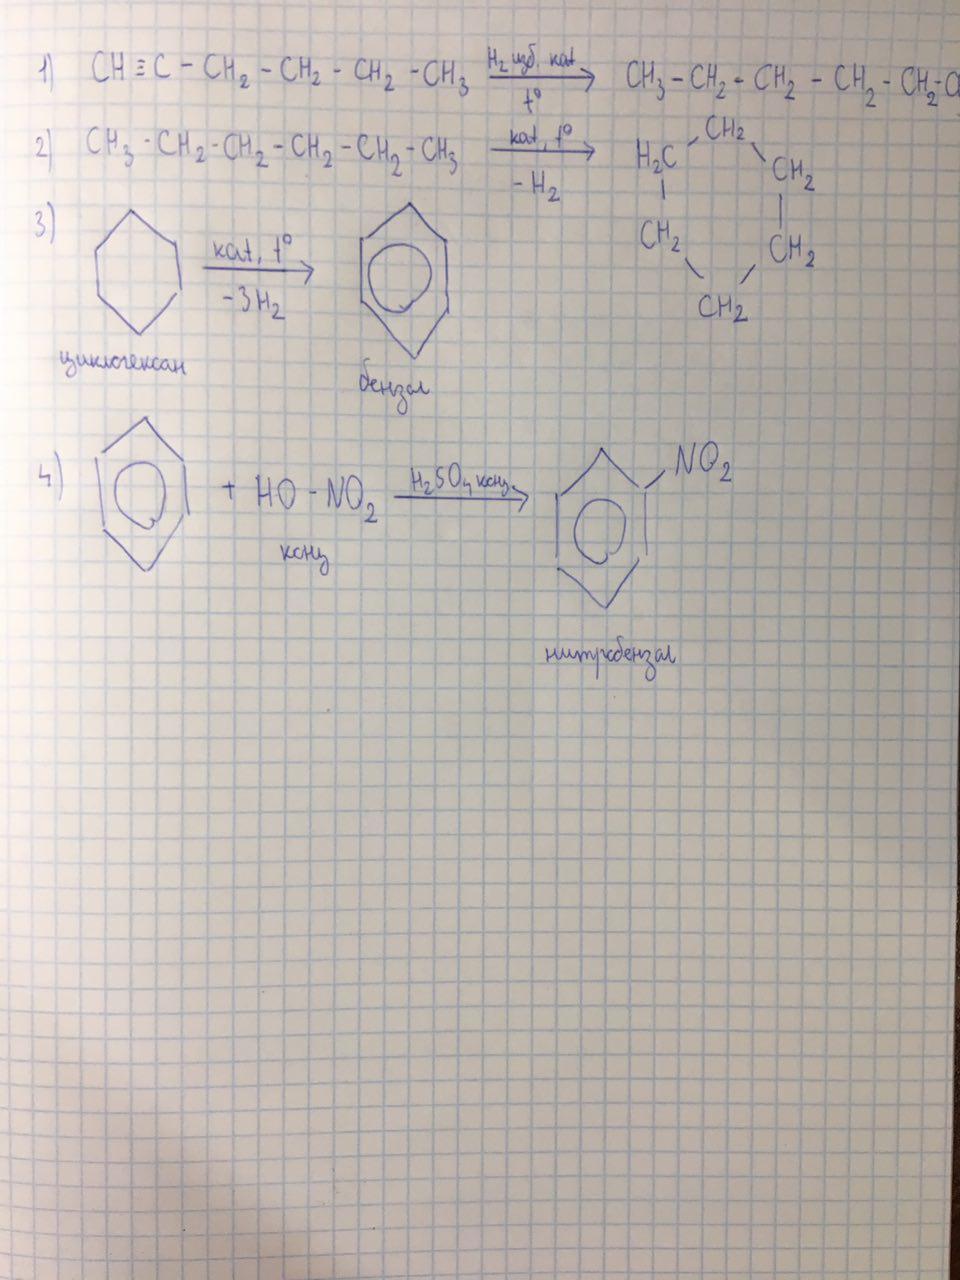 1) CH≡C-CH₂-CH₂-CH₂-CH₃ H₂ изб. kat t° CH₃-CH₂-CH₂-CH₂-CH₂-C
2) CH₃-CH₂-CH₂-CH₂-CH₂-CH₃ kat, t° -H₂
CH₂
H₂C CH₂
CH₂ CH₂
CH₂
3) kat, t° -3H₂
циклогексан бензол
4) + HO-NO₂ H₂SO₄ конц. NO₂
конц
нитробензол